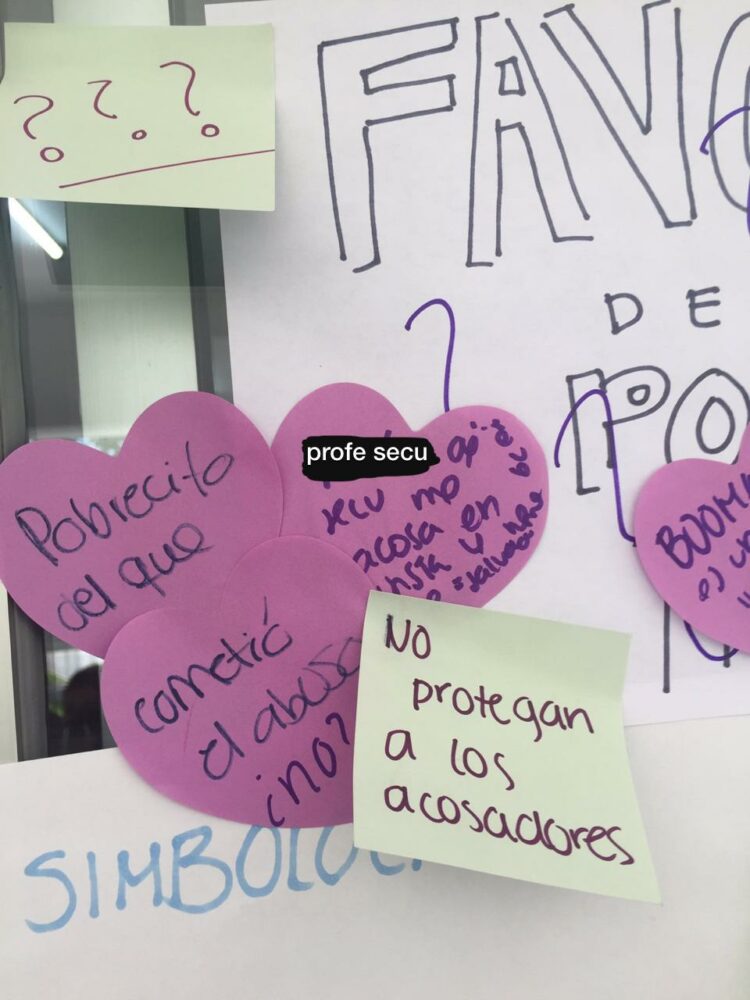 ? ? ?
FAV
DE
PO
?
Pobrecito
del que
profe secu
secu me
acosa en
insta y
cometió
el abuso
¿no?
NO
protegan
a los
acosadores
BOOM
es un
SIMBOLO